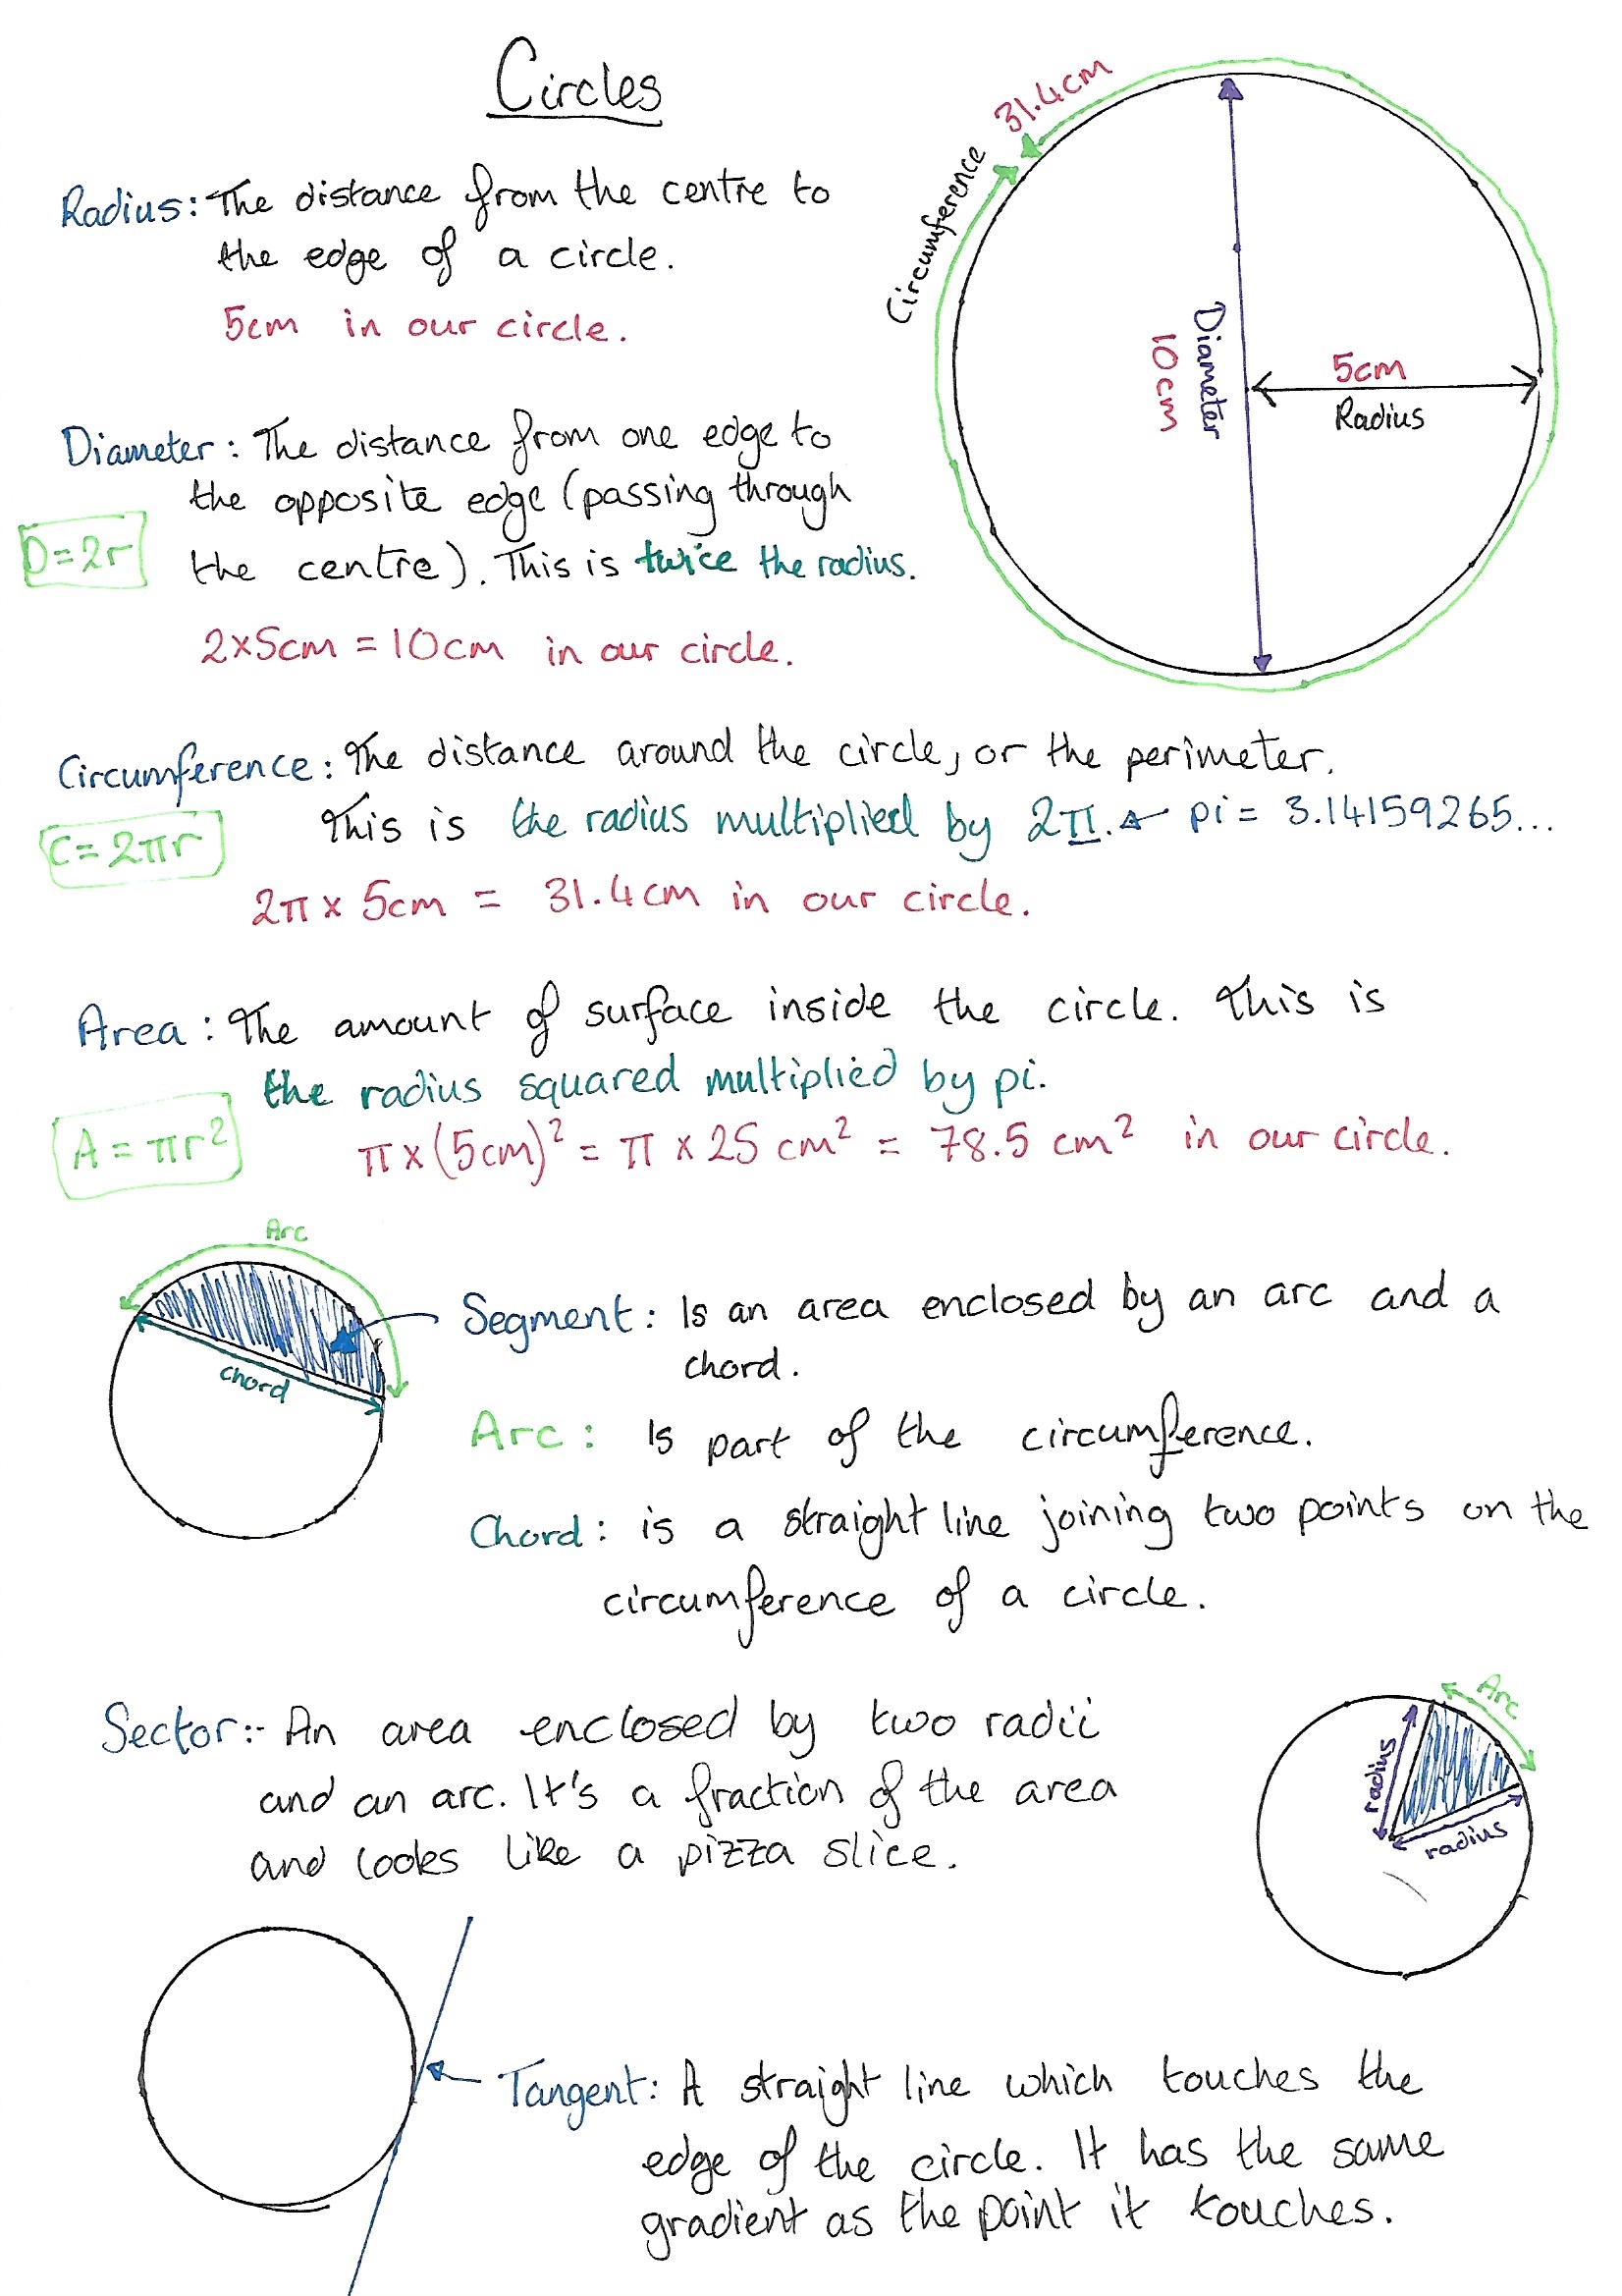 Circles
31.4cm
Circumference
Diameter
10cm
5cm
Radius
Radius: The distance from the centre to
the edge of a circle.
5cm in our circle.
Diameter: The distance from one edge to
the opposite edge (passing through
D=2r
the centre). This is twice the radius.
2×5cm = 10cm in our circle.
Circumference: The distance around the circle, or the perimeter.
This is the radius multiplied by 2π. pi = 3.14159265...
C=2πr
2π × 5cm = 31.4cm in our circle.
Area: The amount of surface inside the circle. This is
the radius squared multiplied by pi.
A = πr²
π×(5cm)² = π × 25 cm² = 78.5 cm² in our circle.
Arc
chord
Segment: Is an area enclosed by an arc and a
chord.
Arc: Is part of the circumference.
Chord: is a straight line joining two points on the
circumference of a circle.
Sector:- An area enclosed by two radii
and an arc. It's a fraction of the area
and looks like a pizza slice.
Arc
radius
radius
Tangent: A straight line which touches the
edge of the circle. It has the same
gradient as the point it touches.